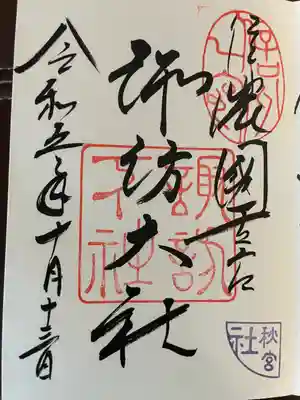 信濃國一之宮
諏訪大社
令和五年十月十三日
諏訪
大社
秋宮
社